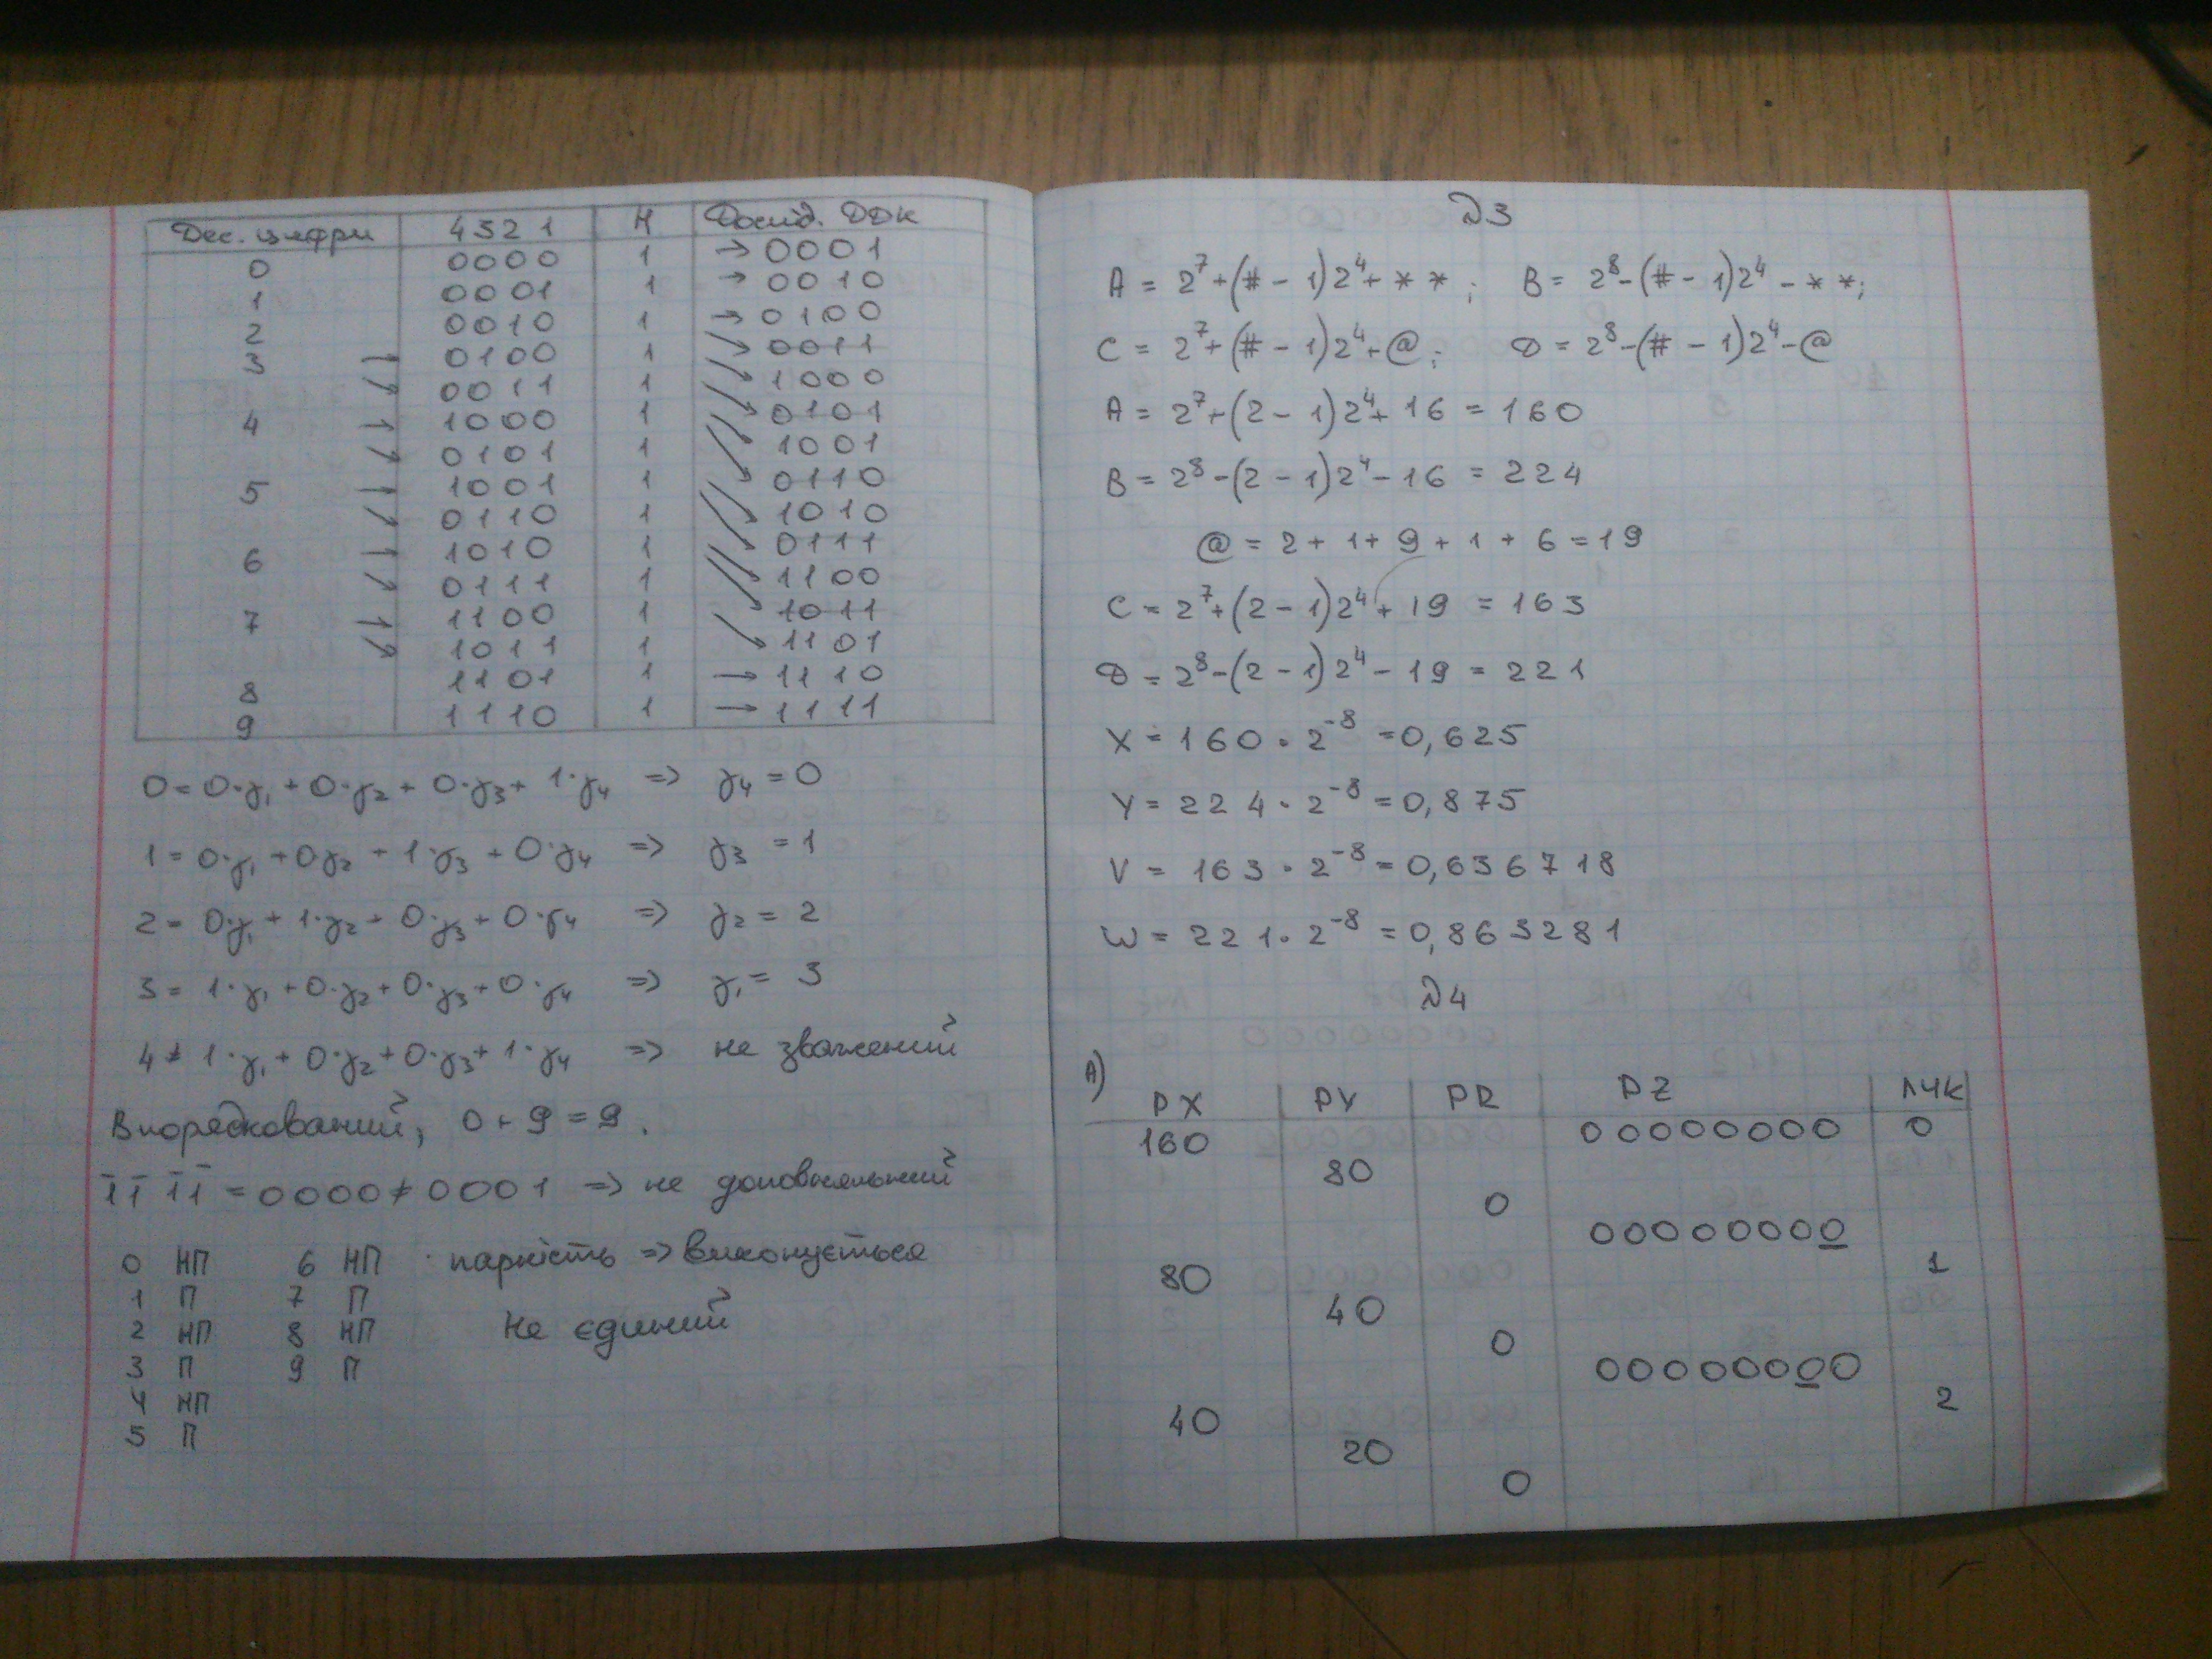 Дес. цифри 4321 H Дослід. ДДК
0 0000 1 → 0001
1 0001 1 → 0010
2 0010 1 → 0100
3 0100 1 0011
0011 1 1000
4 1000 1 0101
0101 1 1001
5 1001 1 0110
0110 1 1010
6 1010 1 0111
0111 1 1100
7 1100 1 1011
1011 1 1101
8 1101 1 → 1110
9 1110 1 → 1111
0 = 0·γ₁ + 0·γ₂ + 0·γ₃ + 1·γ₄ => γ₄ = 0
1 = 0·γ₁ + 0γ₂ + 1·γ₃ + 0·γ₄ => γ₃ = 1
2 = 0·γ₁ + 1·γ₂ + 0·γ₃ + 0·γ₄ => γ₂ = 2
3 = 1·γ₁ + 0·γ₂ + 0·γ₃ + 0·γ₄ => γ₁ = 3
4 ≠ 1·γ₁ + 0·γ₂ + 0·γ₃ + 1·γ₄ => не зважений
Впорядкований, 0 + 9 = 9.
1̅1̅1̅1̅ = 0000 ≠ 0001 => не доповняльний
0 НП 6 НП · парність => виконується
1 П 7 П
2 НП 8 НП не єдиний
3 П 9 П
4 НП
5 П
Д3
A = 2⁷+(#-1)2⁴+**; B = 2⁸-(#-1)2⁴-**;
C = 2⁷+(#-1)2⁴+@; D = 2⁸-(#-1)2⁴-@
A = 2⁷+(2-1)2⁴+16 = 160
B = 2⁸-(2-1)2⁴-16 = 224
@ = 2+1+9+1+6 = 19
C = 2⁷+(2-1)2⁴+19 = 163
D = 2⁸-(2-1)2⁴-19 = 221
X = 160·2⁻⁸ = 0,625
Y = 224·2⁻⁸ = 0,875
V = 163·2⁻⁸ = 0,636718
W = 221·2⁻⁸ = 0,863281
Д4
А)
РХ РУ PR PZ ЛЧК
160 00000000 0
80
0
00000000
80 1
40
0
00000000
40 2
20
0